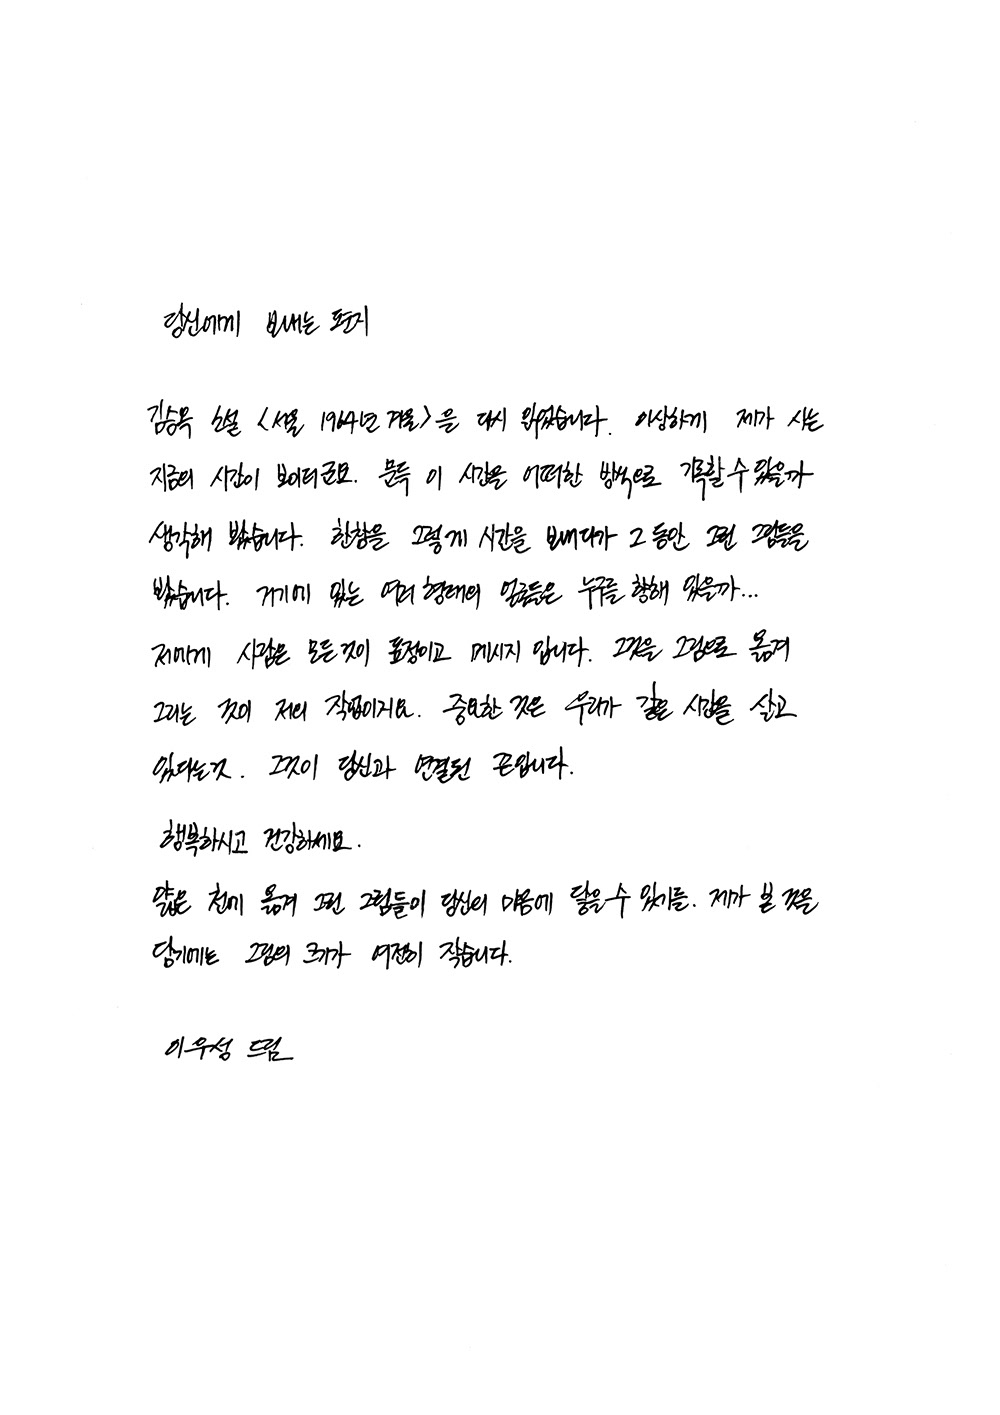 당신에게 보내는 편지
김승옥 소설 <서울 1964년 겨울>을 다시 읽었습니다. 이상하게 제가 사는
지금의 시간이 보이더군요. 문득 이 시간을 어떠한 방식으로 기록할 수 있을까
생각해 봤습니다. 한참을 그렇게 시간을 보내다가 그 동안 그린 그림들을
봤습니다. 거기에 있는 여러 형태의 얼굴들은 누구를 향해 있을까...
저에게 사람은 모든것이 표정이고 메시지 입니다. 그것을 그림으로 옮겨
그리는 것이 저의 작업이지요. 중요한 것은 우리가 같은 시간을 살고
있다는것. 그것이 당신과 연결된 끈입니다.
행복하시고 건강하세요.
얇은 천에 옮겨 그린 그림들이 당신의 마음에 닿을 수 있기를. 제가 본 것을
담기에는 그림의 크기가 여전히 작습니다.
이우성 드림